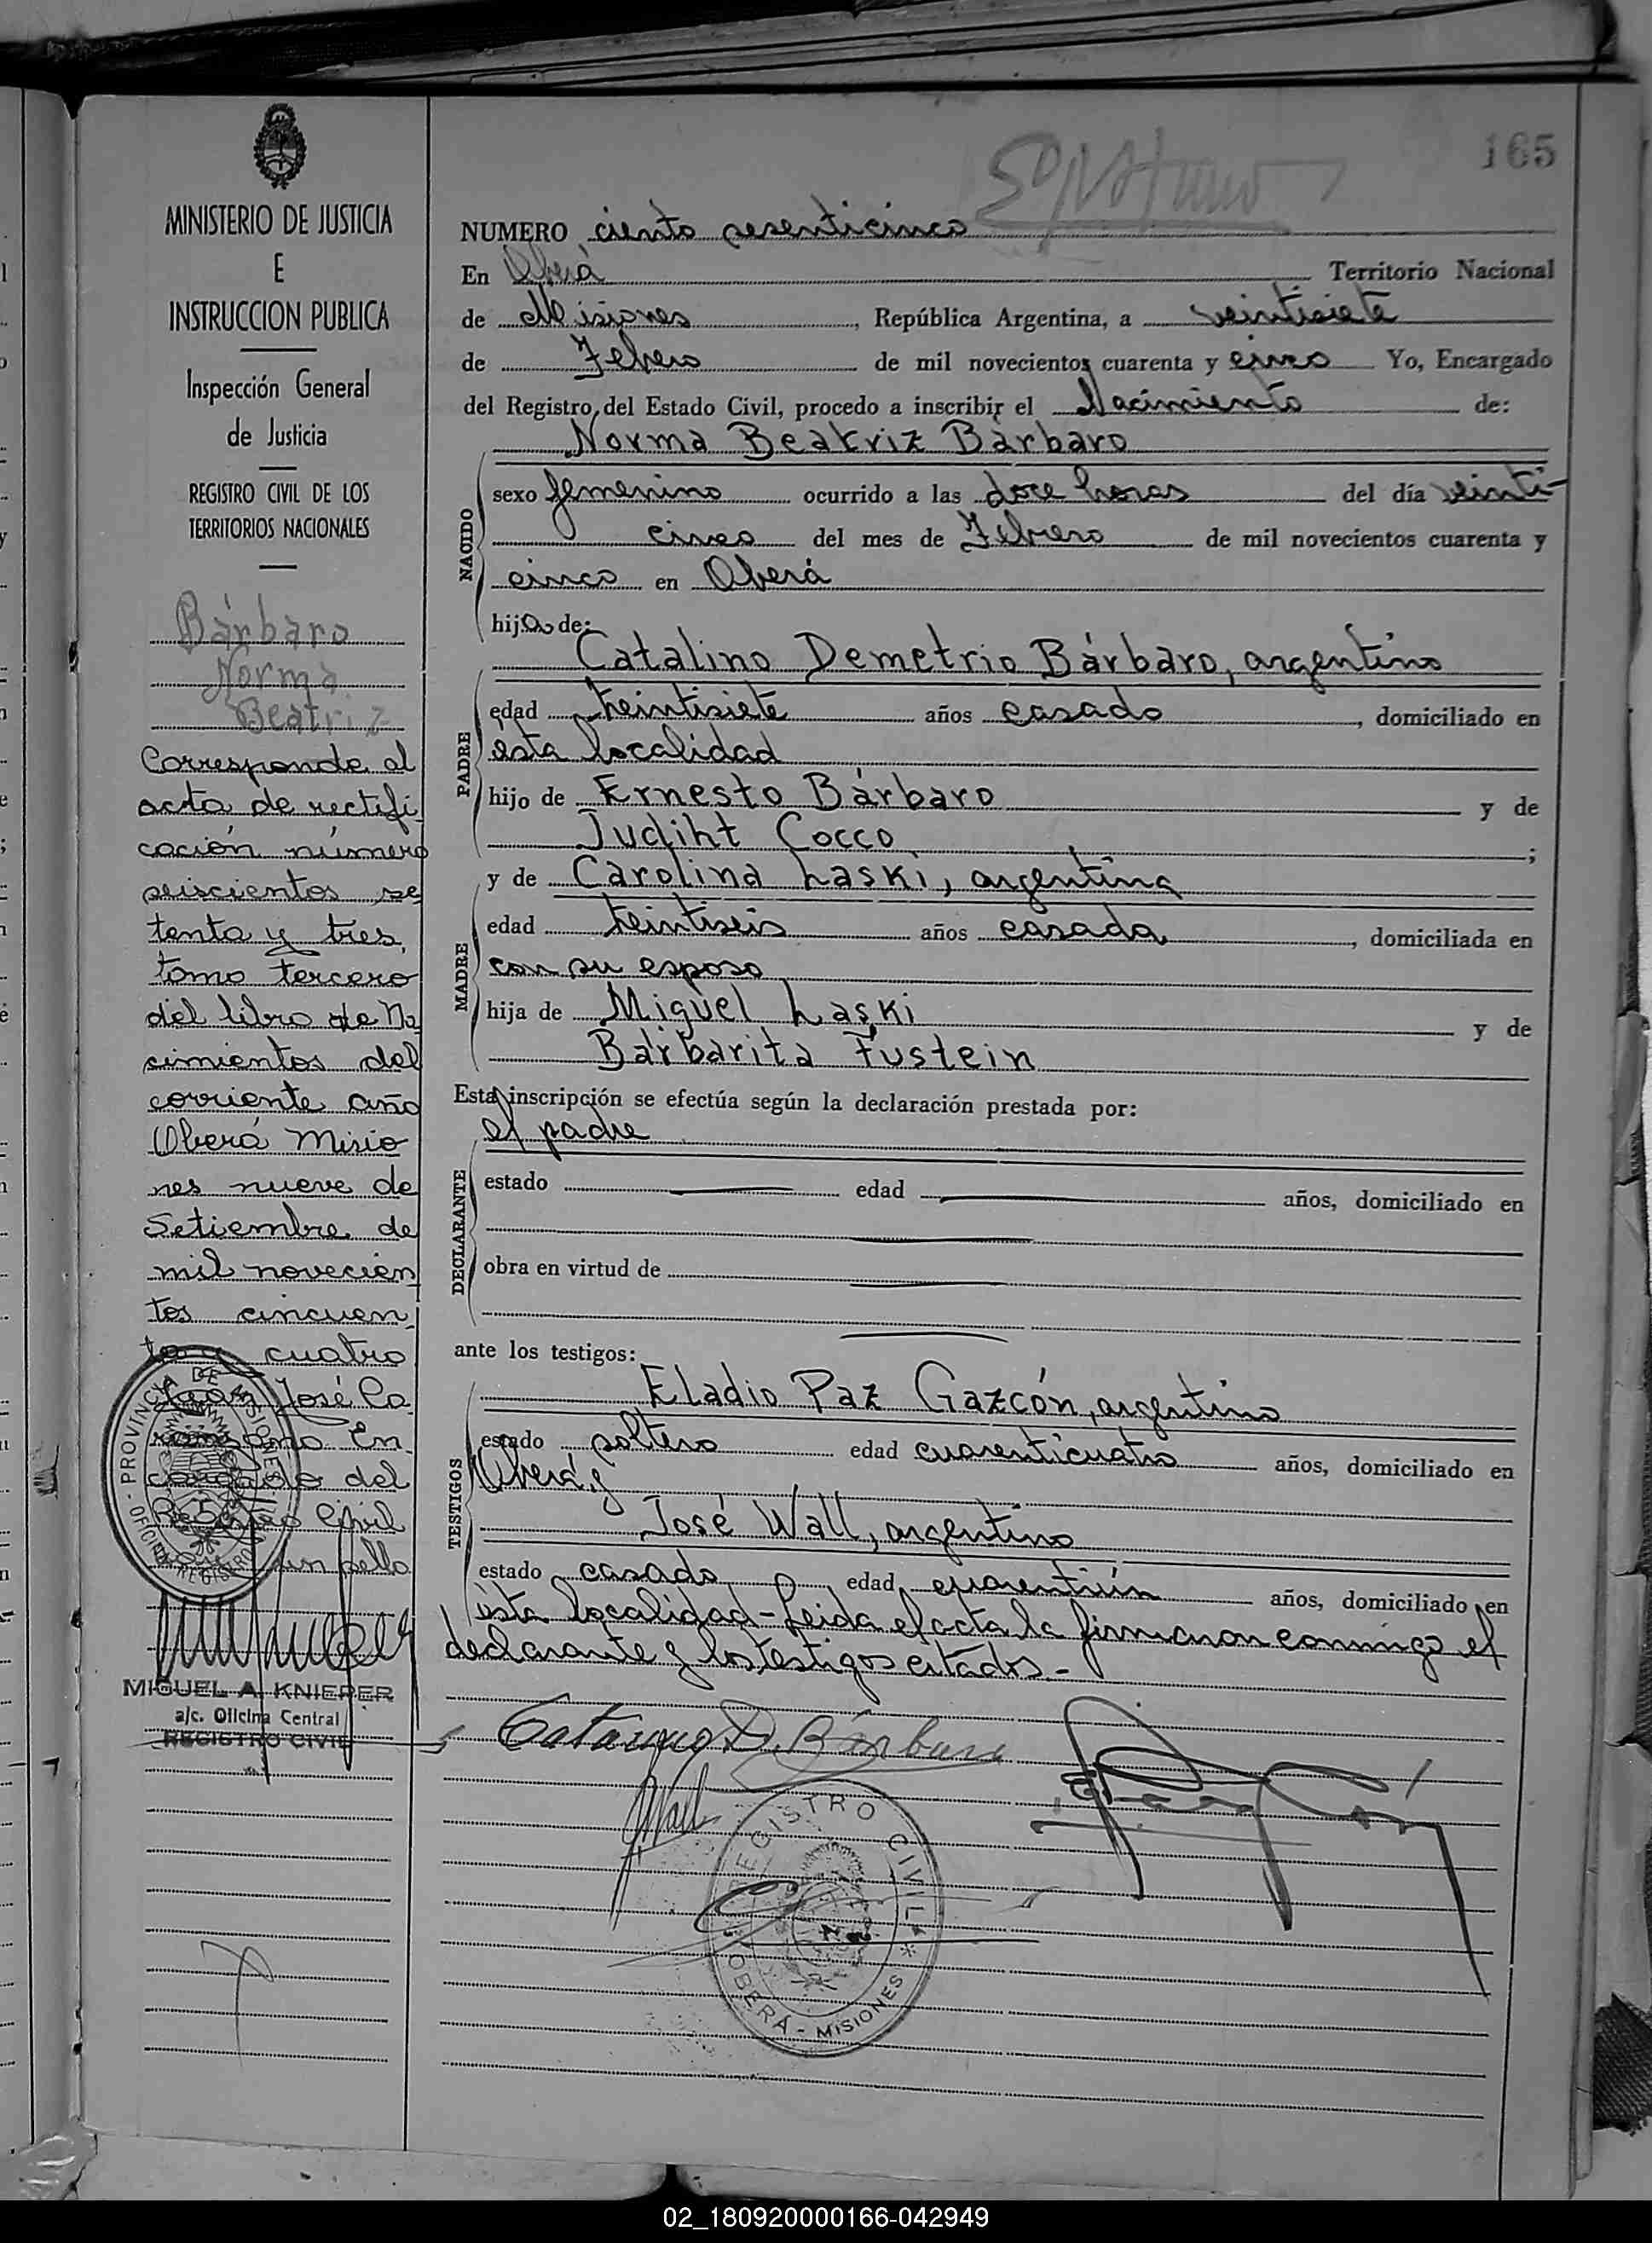 165
MINISTERIO DE JUSTICIA
E
INSTRUCCION PUBLICA
Inspección General
de Justicia
REGISTRO CIVIL DE LOS
TERRITORIOS NACIONALES
Bárbaro
Norma
Beatriz
Corresponde al
acta de rectifi
cación número
seiscientos se
tenta y tres,
tomo tercero
del libro de Na
cimientos del
corriente año
Oberá Misio
nes nueve de
Setiembre de
mil novecien
tos cincuen
ta y cuatro
José Ca
En
cargado del
Registro Civil
sin sello
PROVINCIA DE MISIONES
MIGUEL A. KNIEPER
a/c. Oficina Central
REGISTRO CIVIL
NUMERO ciento sesenticinco
En Oberá Territorio Nacional
de Misiones, República Argentina, a veintisiete
de Febrero de mil novecientos cuarenta y cinco Yo, Encargado
del Registro del Estado Civil, procedo a inscribir el Nacimiento de:
Norma Beatriz Bárbaro
NACIDO
sexo femenino ocurrido a las doce horas del día veinti-
cinco del mes de Febrero de mil novecientos cuarenta y
cinco en Oberá
hija de:
Catalino Demetrio Bárbaro, argentino
PADRE
edad treintisiete años casado, domiciliado en
ésta localidad
hijo de Ernesto Bárbaro y de
Judiht Cocco;
y de Carolina Laski, argentina
MADRE
edad treintiseis años casada, domiciliada en
con su esposo
hija de Miguel Laski y de
Bárbarita Fustein
Esta inscripción se efectúa según la declaración prestada por:
el padre
DECLARANTE
estado edad años, domiciliado en
obra en virtud de
ante los testigos:
Eladio Paz Gazcón, argentino
TESTIGOS
estado soltero edad cuarenticuatro años, domiciliado en
Oberá y
José Wall, argentino
estado casado, edad cuarentiún años, domiciliado en
ésta localidad - Leida el acta la firmaron conmigo el
declarante y los testigos citados.-
Catalino D. Bárbaro
JWall
REGISTRO CIVIL
OBERÁ - MISIONES
02_180920000166-042949